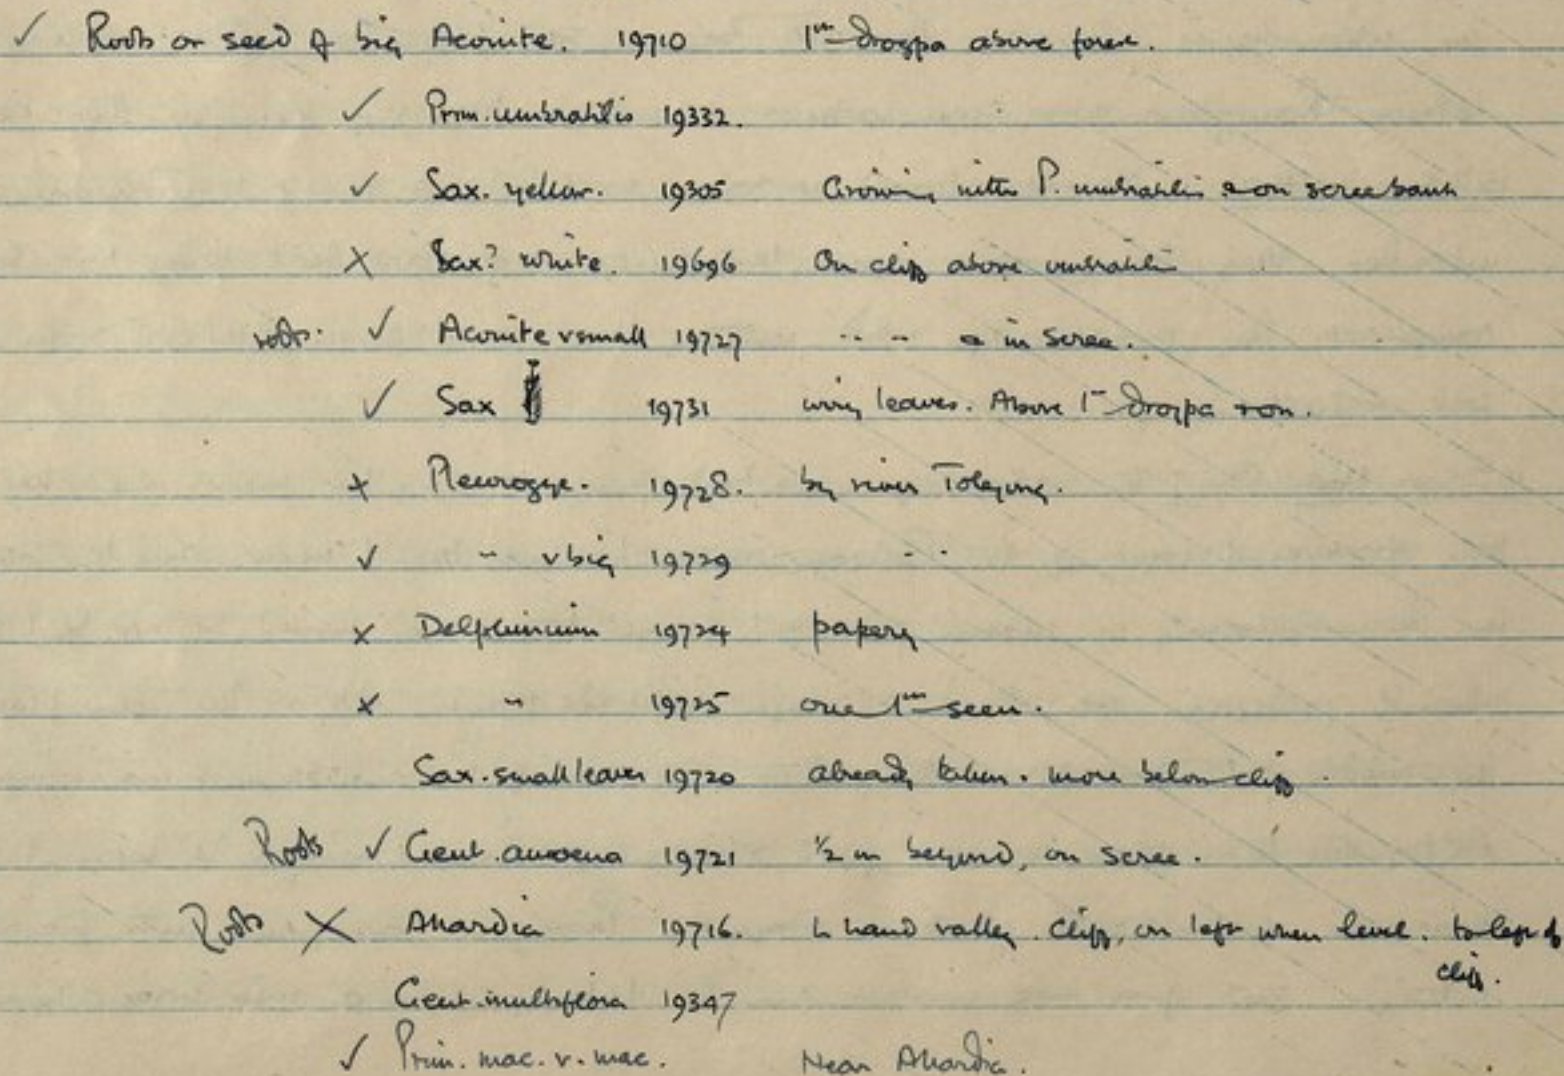 ✓ Roots or seed of big Aconite. 19710 1st drogpa above forest.
✓ Prim. umbratilis 19332.
✓ Sax. yellow. 19305 Growing with P. umbratilis & on scree bank
X Sax? white. 19696 On cliff above umbratilis
roots. ✓ Aconite v small 19727 " " & in scree.
✓ Sax 19731 wiry leaves. Above 1st drogpa
x Pleurogyne. 19728. by river
✓ " v big 19729 " "
x Delphinium 19724 papery
x " 19725 one 1st seen.
Sax. small leaves 19720 already taken. more below cliff.
Roots ✓ Gent. amoena 19721 ½ m beyond, on scree.
Roots X 19716. L hand valley. Cliff, on left when level. to left of
cliff.
Gent. multiflora 19347
✓ Prim. mac. v. mac. Near